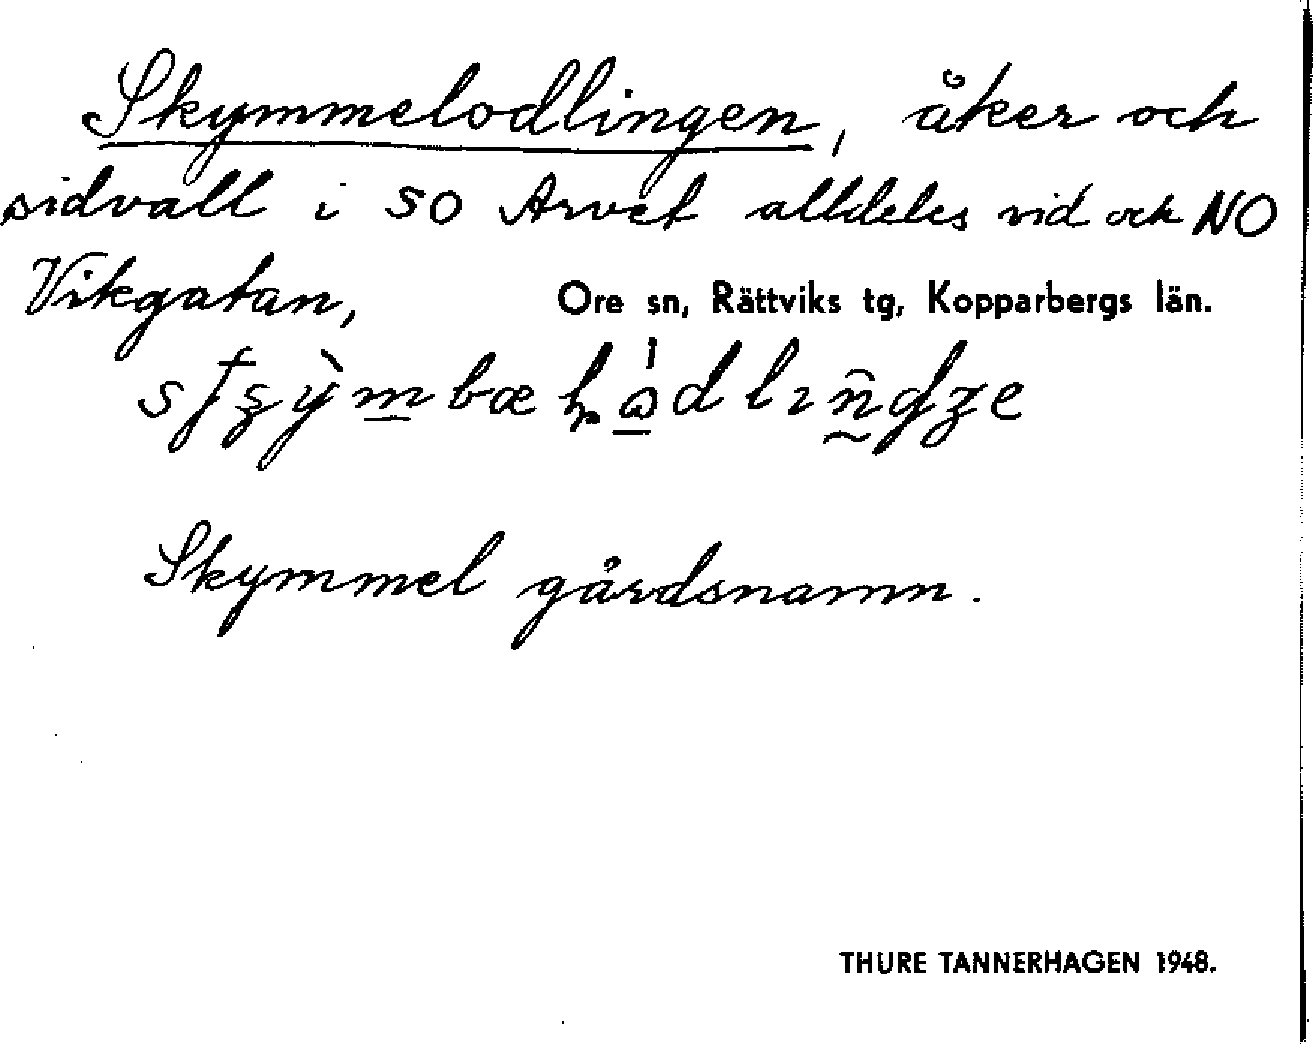 Skymmelodlingen, åker och
sidvall i SO Arvet alldeles vid och NO
Vikgatan,
Ore sn, Rättviks tg, Kopparbergs län.
Skymmel gårdsnamn.
THURE TANNERHAGEN 1948.